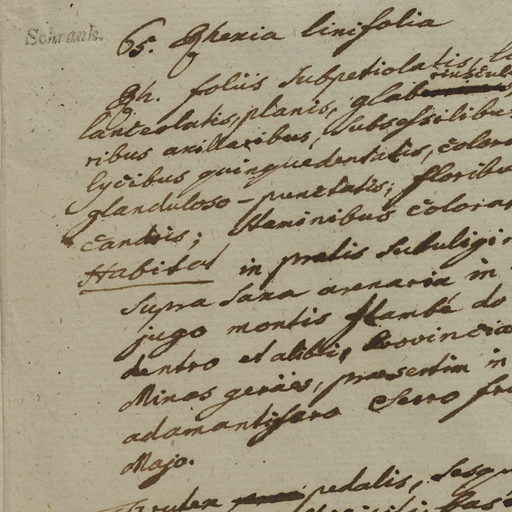 Schrank.
65. Rhexia linifolia
Rh. foliis subpetiolatis,
lanceolatis, planis, glabriusculis
ribus axillaribus, subsessilibus
lycibus quinquedentatis, colora
glanduloso-punctatis; floribus
candris; staminibus colora
Habitat in pratis subuligi
supra saxa arenaria in
jugo montis Itambé do
dentro et alibi, Provincia
Minas geraës, praesertim in
adamantifero Cerro fri
Majo.
Frutex pedalis, sesqu